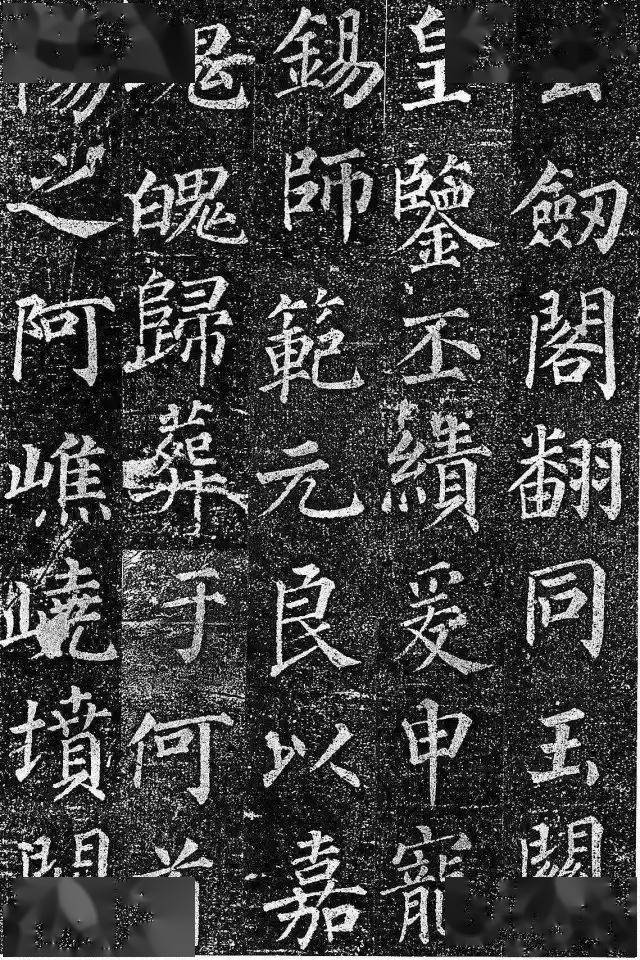 劒閣翻同玉關
皇鑒丕績爰申寵
錫師範元良以嘉
魂魄歸葬于何
陽之阿嶕嶢墳